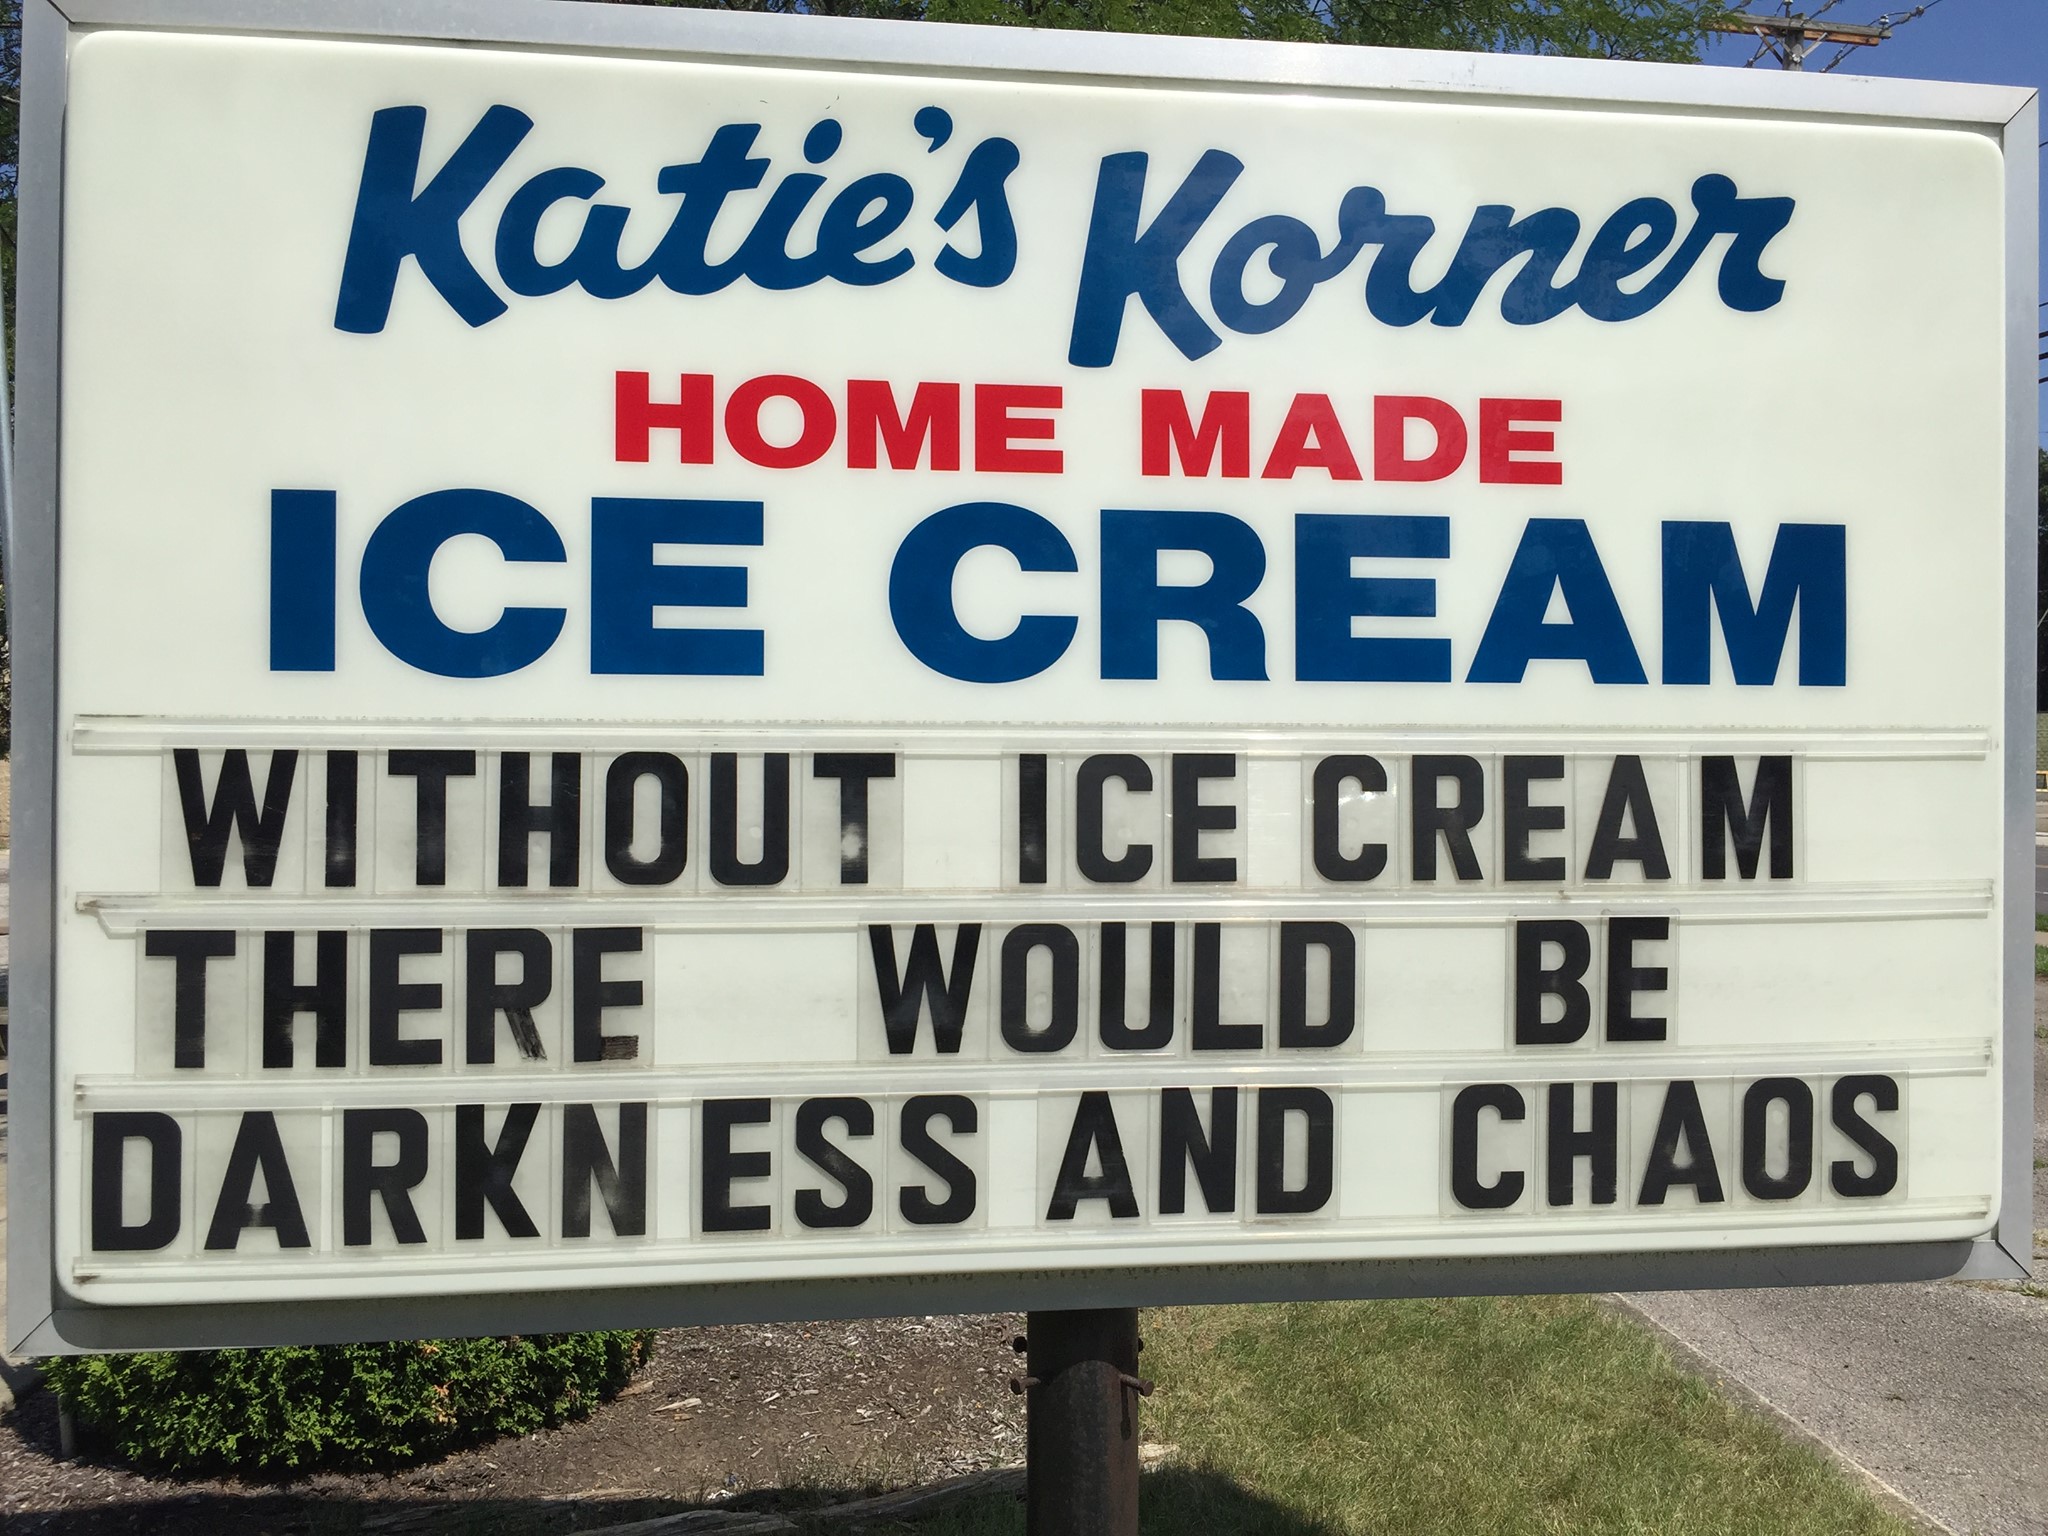 Katie's Korner
HOME MADE
ICE CREAM
WITHOUT ICE CREAM
THERE WOULD BE
DARKNESS AND CHAOS